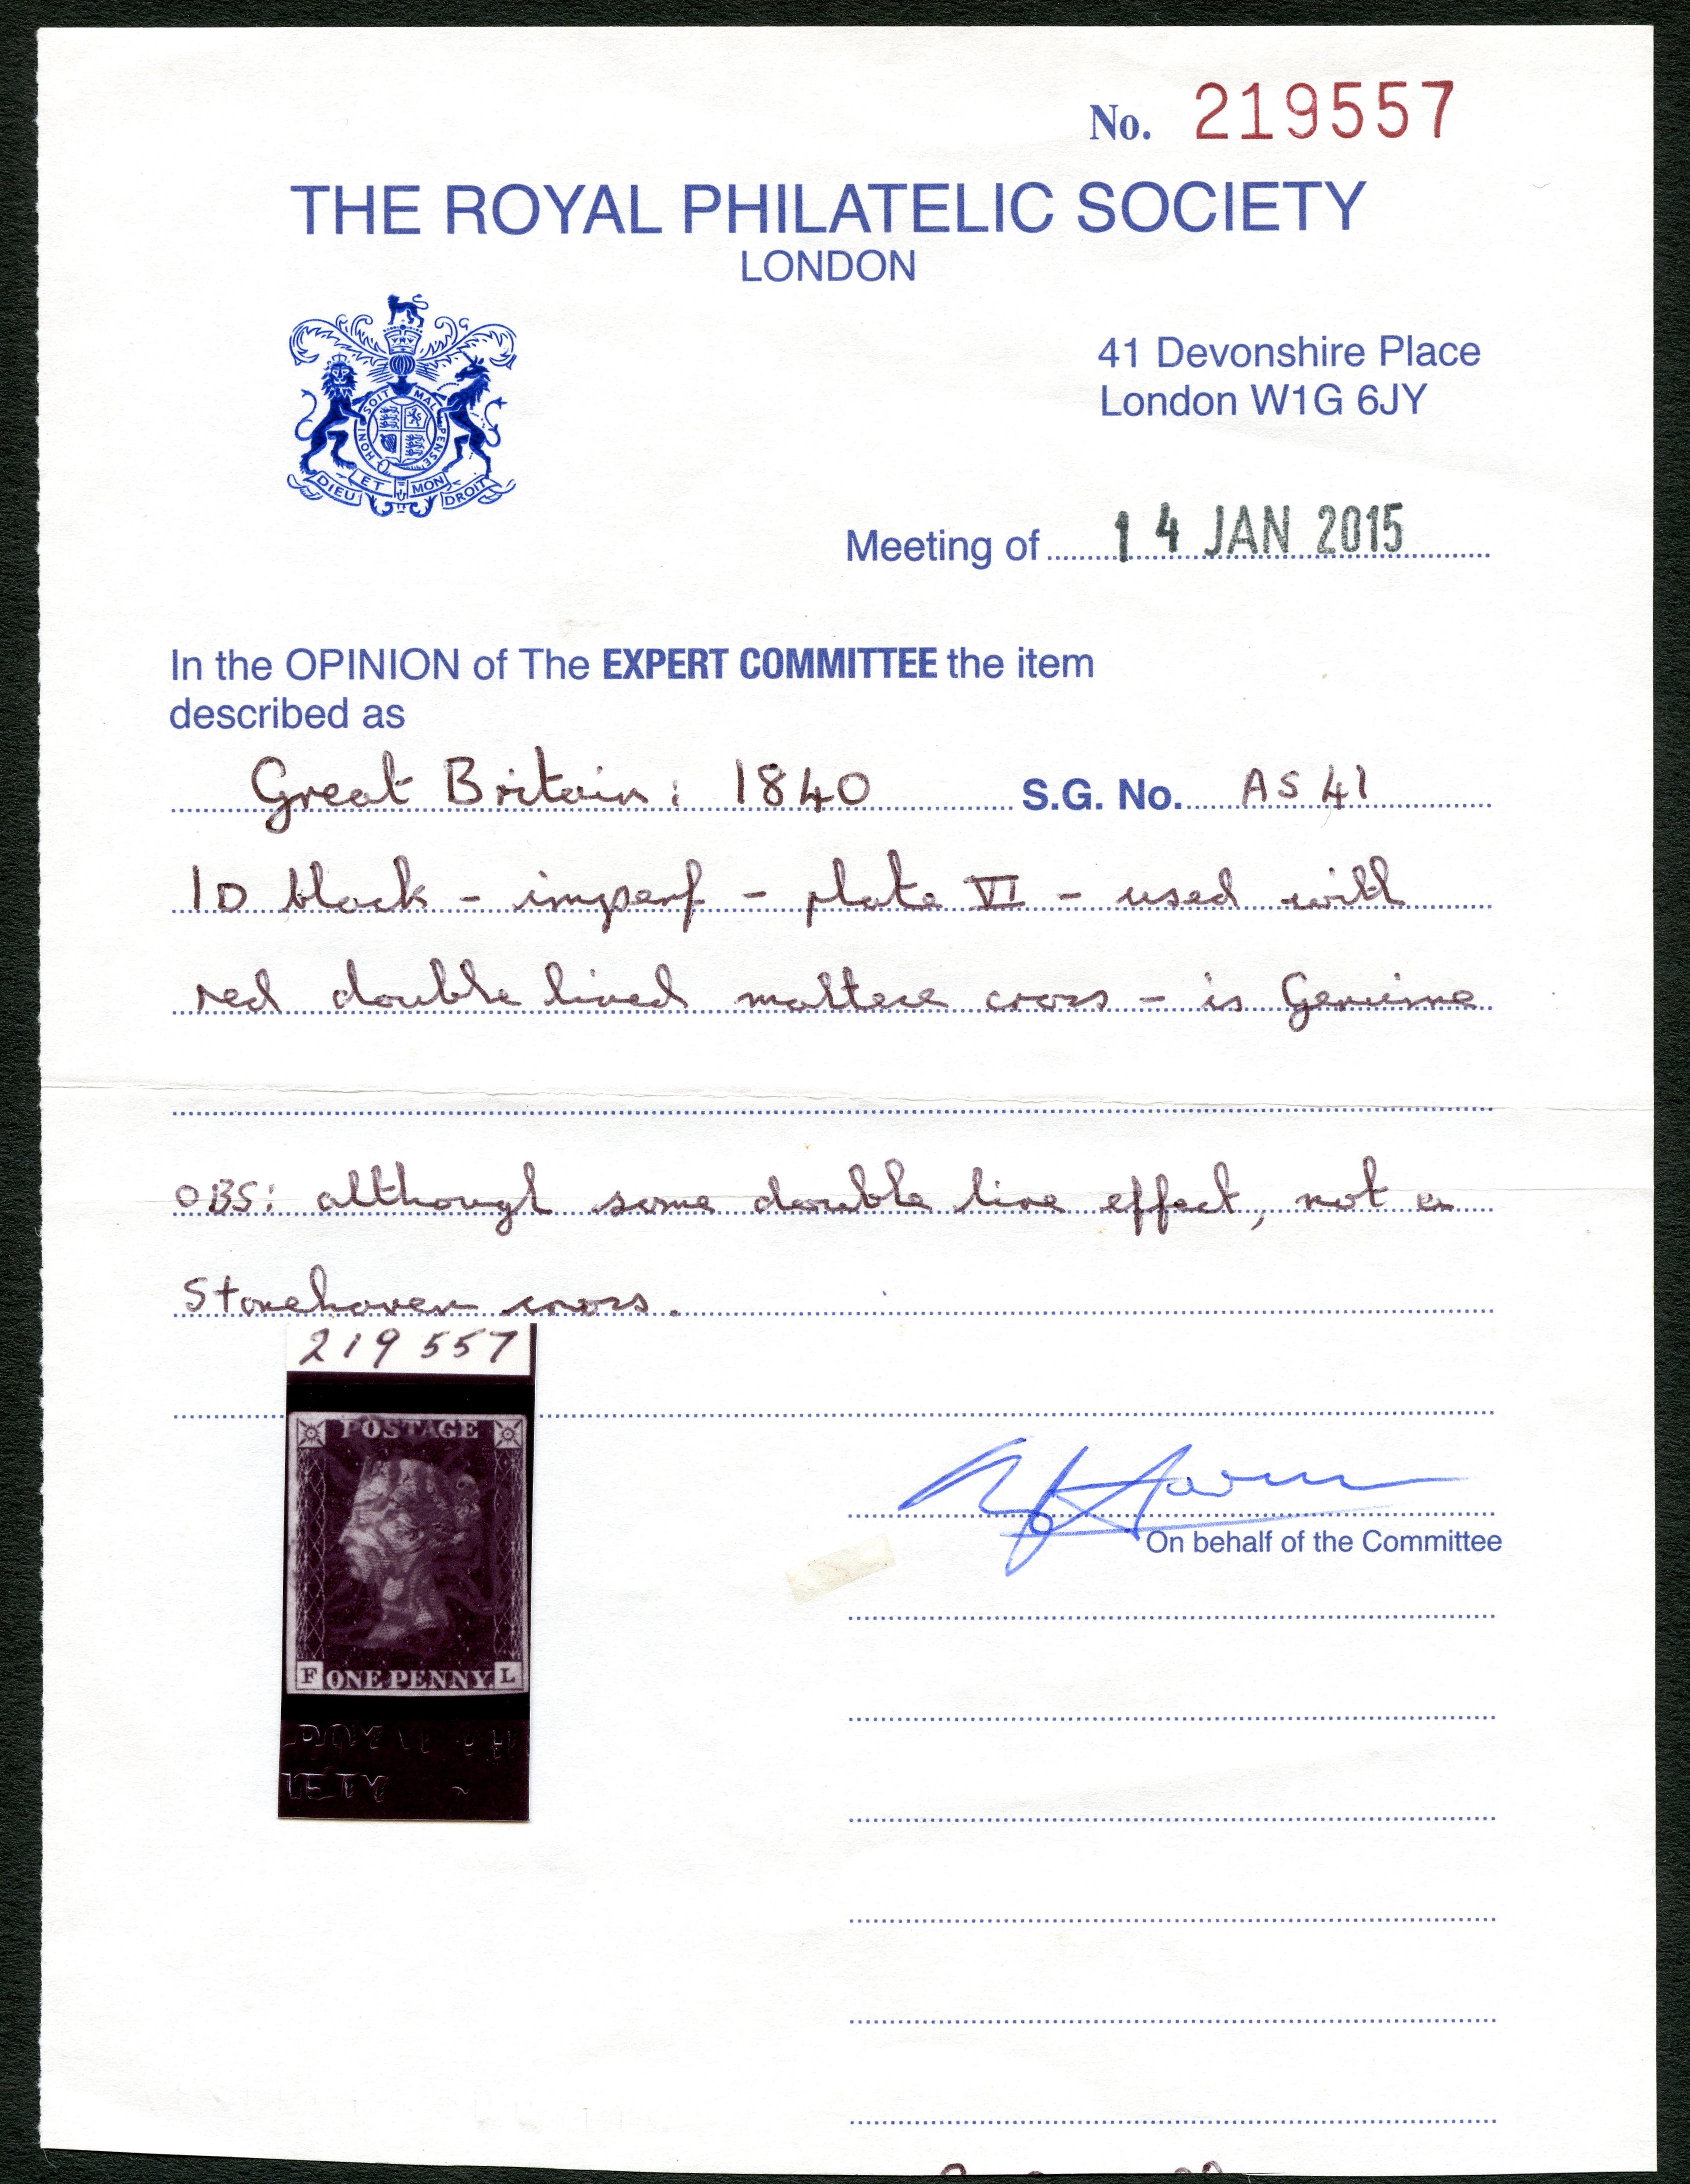 No. 219557
THE ROYAL PHILATELIC SOCIETY
LONDON
HONI SOIT MAL PENSE
DIEU ET MON DROIT
41 Devonshire Place
London W1G 6JY
Meeting of 14 JAN 2015
In the OPINION of The EXPERT COMMITTEE the item
described as
Great Britain: 1840 S.G. No. AS 41
1D black - imperf - plate VI - used with
red double lined maltese cross - is Genuine
OBS: although some double line effect, not a
Stonehaven cross.
219 557
POSTAGE
F ONE PENNY. L
IETY
On behalf of the Committee